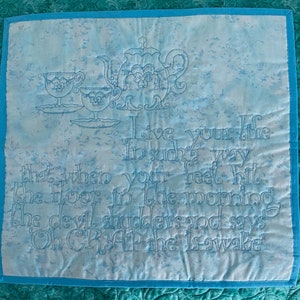 Live your life
In such a way
that when your feet hit
the floor in the morning
the devil shudders and says
Oh CRAP she is awake